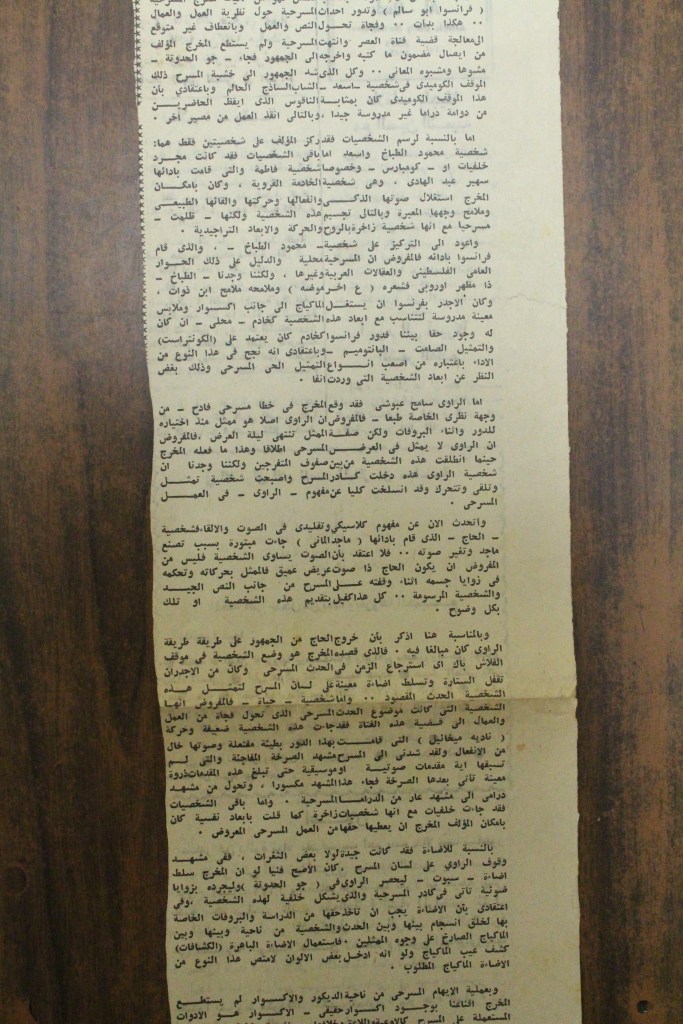 ( فرانسوا ابو سالم ) وتدور احداث المسرحية حول نظرية العمل والعمال
.. هكذا بدات .. وفجاة تحول النص والعمل وبانعطاف غير متوقع
الى معالجة قضية فتاة العصر وانتهت المسرحية ولم يستطع المخرج المؤلف
من ايصال مضمون ما كتبه واخرجه الى الجمهور فجاء – جو الحدوتة –
مشوها ومشبوه المعاني .. وكل الذى شد الجمهور الى خشبة المسرح ذلك
الموقف الكوميدى فى شخصية – اسعد – الشاب الساذج الحالم وباعتقادي بأن
هذا الموقف الكوميدى كان بمثابة الناقوس الذى ايقظ الحاضرين
من دوامة دراما غير مدروسة جيدا ، وبالتالى انقذ العمل من مصير آخر .
اما بالنسبة لرسم الشخصيات فقد ركز المؤلف على شخصيتين فقط هما:
شخصية محمود الطباخ واسعد اما باقى الشخصيات فقد كانت مجرد
خلفيات او – كومبارس – وخصوصا شخصية فاطمة والتى قامت بادائها
سهير عبد الهادى . وهى شخصية الخادمة القروية ، وكان بامكان
المخرج استغلال صوتها الذكى وانفعالها وحركتها والقائها الطبيعى
وملامح وجهها المعبرة وبالتالى تجسيم هذه الشخصية ولكنها – ظلمت –
مسرحيا مع انها شخصية زاخرة بالروح والحركة والابعاد التراجيدية .
واعود الى التركيز على شخصية – محمود الطباخ – ، والذى قام
فرانسوا بادائه فالمفروض ان المسرحية محلية والدليل على ذلك الحوار
العامى الفلسطينى والعقالات العربية وغيرها ، ولكننا وجدنا – الطباخ –
ذا مظهر اوروبى فشعره ( ع اخر موضه ) وملامحه ملامح ابن ذوات ،
وكان الاجدر بفرانسوا ان يستغل الماكياج الى جانب اكسسوار وملابس
معينة مدروسة لتتناسب مع ابعاد هذه الشخصية كخادم – محلى – ان كان
له وجود حقا بيننا فدور فرانسوا كخادم كان يعتمد على (الكونتراست)
والتمثيل الصامت – البانتوميم – وباعتقادى انه نجح فى هذا النوع من
الاداء باعتباره من اصعب انواع التمثيل الحى المسرحى وذلك بغض
النظر عن ابعاد الشخصية التى وردت انفا .
اما الراوى سامح عبوشى فقد وقع المخرج فى خطا مسرحى فادح – من
وجهة نظرى الخاصة طبعا – فالمفروض ان الراوى اصلا هو ممثل منذ اختياره
للدور واثناء البروفات ولكن صفة الممثل تنتهى ليلة العرض ، فالمفروض
ان الراوى لا يمثل فى العرض المسرحى اطلاقا وهذا ما فعله المخرج
حينما انطلقت هذه الشخصية من بين صفوف المتفرجين ولكننا وجدنا ان
شخصية الراوى هذه دخلت كادر المسرح واصبحت شخصية تمثل
وتلقى وتتحرك وقد انسلخت كليا عن مفهوم – الراوى – فى العمل
المسرحى .
واتحدث الان عن مفهوم كلاسيكى وتقليدى فى الصوت والالقاء فشخصية
– الحاج – الذى قام بادائها ( ماجد المانى ) جاءت مبتورة بسبب تصنع
ماجد وتغير صوته .. فلا اعتقد بأن الصوت يساوى الشخصية فليس من
المفروض ان يكون الحاج ذا صوت عريض عميق فالممثل بحركاته وتحكمه
فى زوايا جسمه اثناء وقفته على المسرح من جانب النص الجيد
والشخصية المرسومة .. كل هذا كفيل بتقديم هذه الشخصية او تلك
بكل وضوح .
وبالمناسبة هنا اذكر بأن خروج الحاج من الجمهور على طريقة طريقة
الراوى كان مبالغا فيه . فالذى قصده المخرج هو وضع الشخصية فى موقف
الفلاش باك اى استرجاع الزمن فى الحدث المسرحى وكان من الاجدر ان
تقفل الستارة وتسلط اضاءة معينة على لسان المسرح لتمثل هذه
الشخصية الحدث المقصود .. واما شخصية – حياة – فالمفروض انها
الشخصية التى كانت موضوع الحدث المسرحى الذى تحول فجاة من العمل
والعمال الى قضية هذه الفتاة فقد جاءت هذه الشخصية ضعيفة وحركة
( ناديه ميخائيل ) التى قامت بهذا الدور بطيئة مفتعلة وصوتها خال
من الانفعال ولقد شدنى الى المسرح مشهد الصرخة المفاجئة والتى لم
تسبقها اية مقدمات صوتية او موسيقية حتى تبلغ هذه المقدمات ذروة
معينة تأتى بعدها الصرخة فجاء هذا المشهد مكسورا ، وتحول من مشهد
درامى الى مشهد عار من الدراما المسرحية . واما باقى الشخصيات
فقد جاءت خلفيات مع انها شخصيات زاخرة كما قلت بابعاد نفسية كان
بامكان المؤلف المخرج ان يعطيها حقها من العمل المسرحى المعروض .
بالنسبة للاضاءة فقد كانت جيدة لولا بعض الثغرات ، ففى مشهد
وقوف الراوي على لسان المسرح ، كان الاصح فنيا لو ان المخرج سلط
اضاءة – سبوت – ليحصر الراوى فى ( جو الحدوتة ) وليجرده بزوايا
ضوئية تأتى فى كادر المسرحية والذى يشكل خلفية لهذه الشخصية ، وفى
اعتقادى بأن الاضاءة يجب ان تاخذ حقها من الدراسة والبروفات الخاصة
بها لخلق انسجام بينها وبين الحدث والشخصية من ناحية وبينها وبين
الماكياج الصارخ على وجوه الممثلين . فاستعمال الاضاءة الباهرة (الكشافات)
كشف عيب الماكياج ولو انه ادخل بعض الالوان لامتص هذا النوع من
الاضاءة الماكياج المطلوب .
وبعملية الايهام المسرحى من ناحية الديكور والاكسوار لم يستطع
المخرج اقناعنا بوجود اكسوار حقيقى – الاكسوار هو الادوات
المستعملة على المسرح